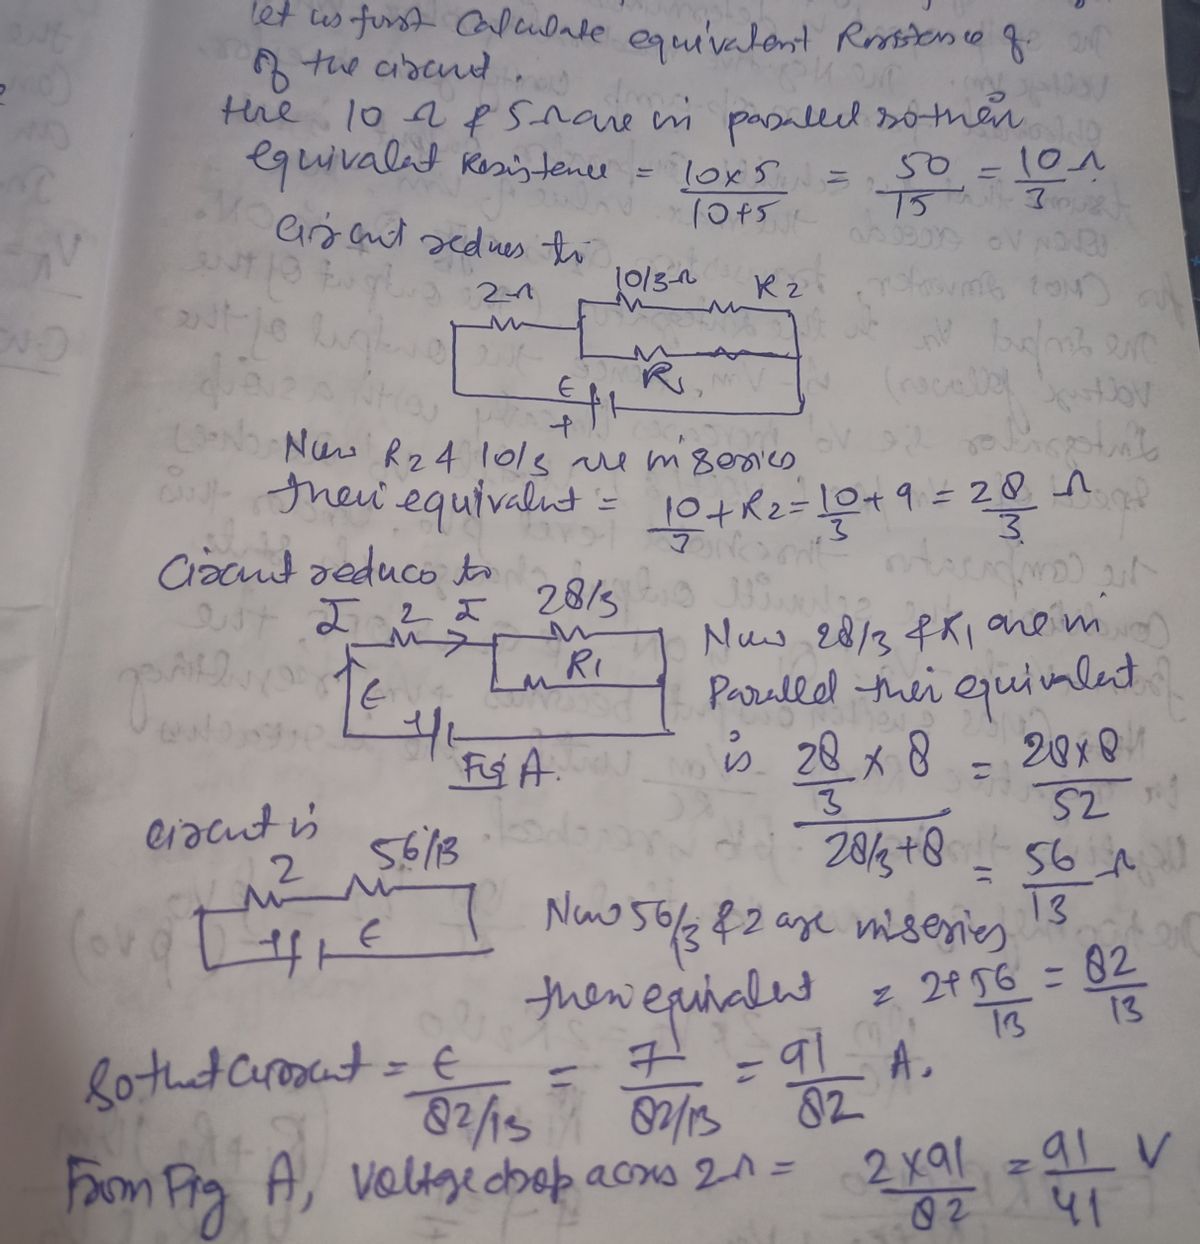 let us first Calculate equivalent Resistence of
of the circuit.
the 10 Ω & 5Ω are in parallel so their
equivalent Resistence = 10x5/10+5 = 50/15 = 10/3 Ω
Circuit reduces to
2Ω 10/3Ω R2
R1
E
+
Now R2 & 10/3 are in series
their equivalent = 10/3 + R2 = 10/3 + 9 = 28/3 Ω
Circuit reduces to
I 2 I 28/3
R1
E
+
Fig A.
Now 28/3 & R1 are in
Parallel their equivalent
is 28/3 x 8 / 28/3+8 = 28x8/52
= 56/13 Ω
circuit is
2 56/13
+ E
Now 56/3 & 2 are in series
their equivalent = 2+56/13 = 82/13
So that Current = E/82/13 = 7/82/13 = 91/82 A.
From Fig A, Voltage drop across 2Ω = 2x91/82 = 91/41 V